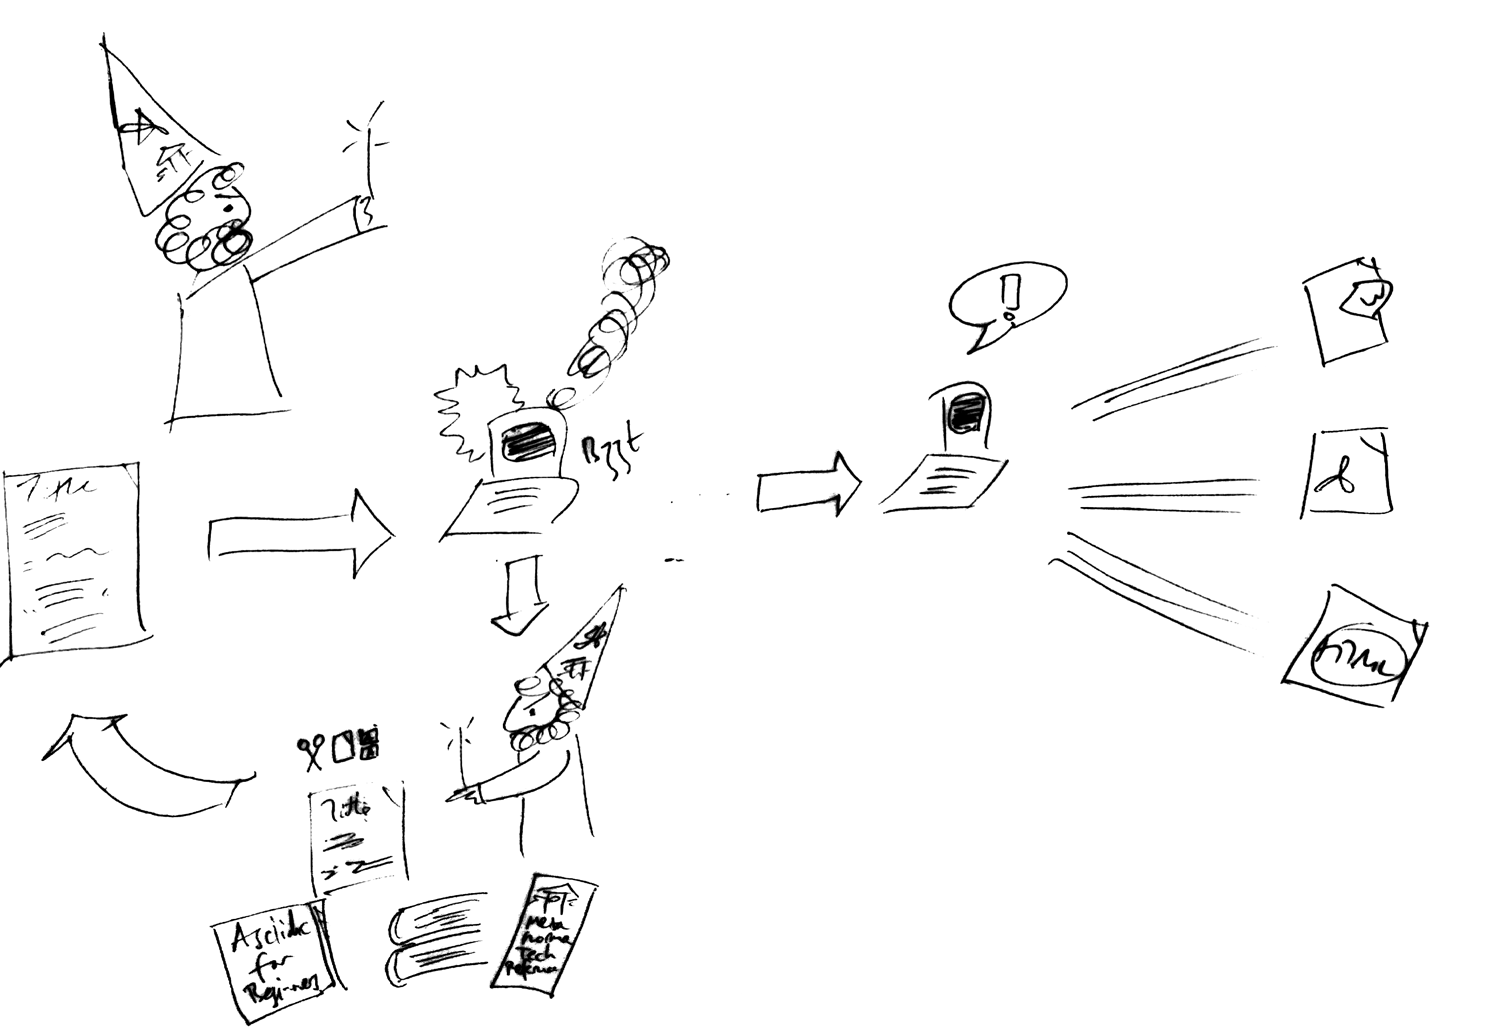 Title
Bzzt
!
Title
Asciidoc
for
Beginners
Meta
norma
Tech
Reference